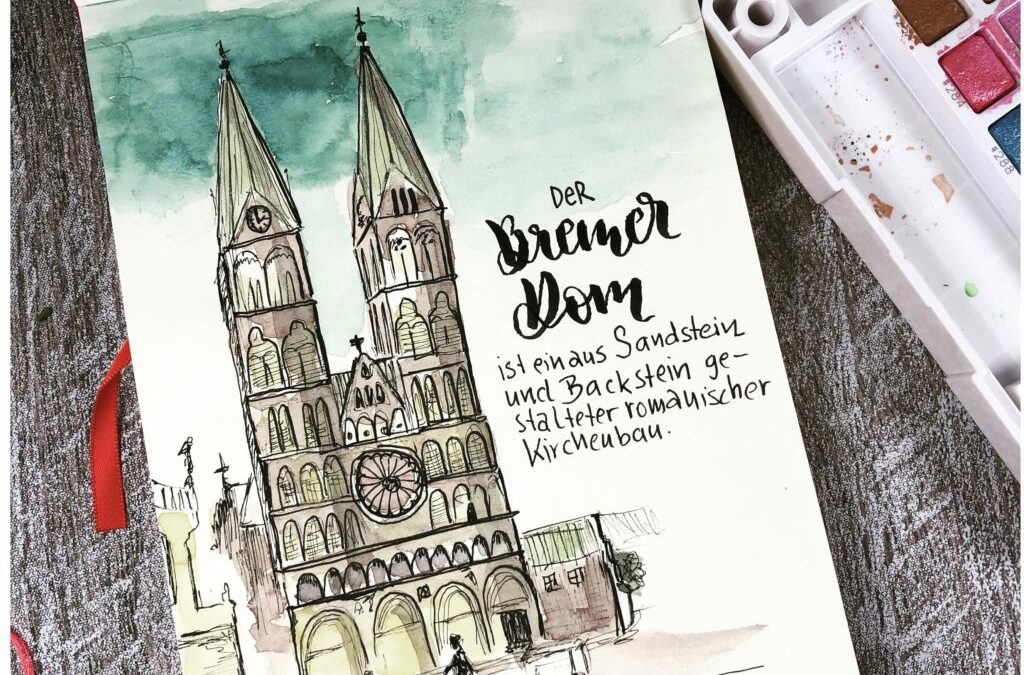 DER
Bremer
Dom
ist ein aus Sandstein
und Backstein ge-
stalteter romanischer
Kirchenbau.
#284
#288